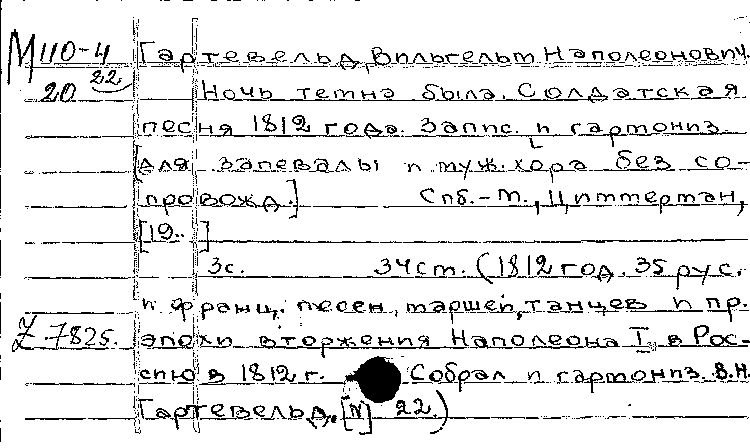 М 110-4 Гартевельд, Вильгельм Наполеонович.
20 22 Ночь темна была. Солдатская
песня 1812 года. Запис. и гармониз.
[для запевалы и муж. хора без со-
провожд.] Спб.-М., Циммерман,
[19.. ]
3с. 34см. (1812 год. 35 рус.
и франц. песен, маршей, танцев и пр.
Z 7825. эпохи вторжения Наполеона I в Рос-
сию в 1812 г. Собрал и гармониз. В.Н.
Гартевельд, [N] 22.)